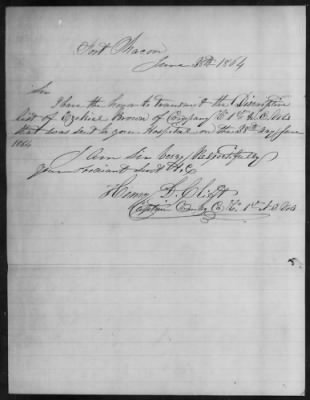 Fort Macon
June 28th 1864
Sir
I have the honor to transmit the Discriptive
list of Ezekiel Brown of Company "K" 1st N.C. Vols
that was sent to your Hospital on the 28th day June
1864
I Am Sir very Respectfully
Your Obediant Svt &c
Henry
Captain Comdg Co "K" 1st N.C. Vols